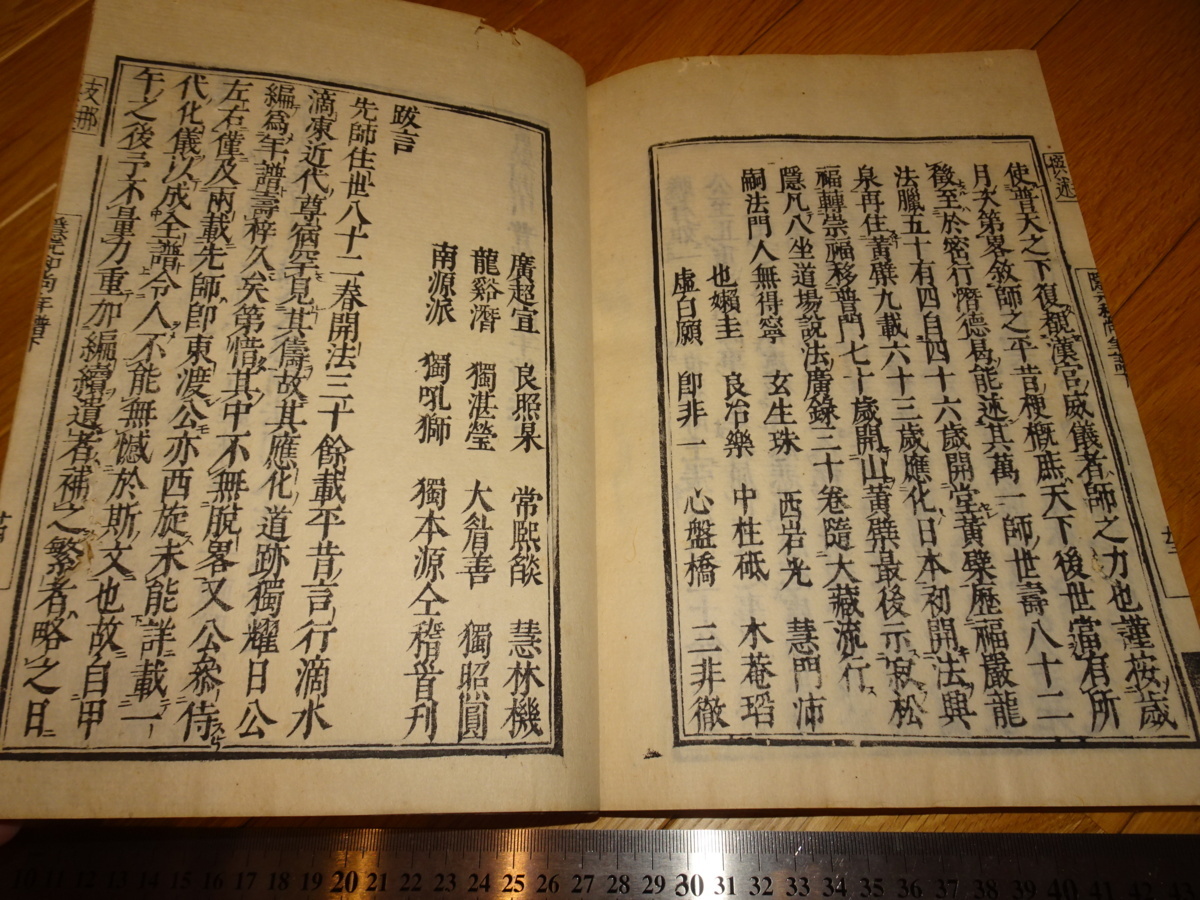 使普天之下復覩漢官威儀者師之力也謹按歲
月次第畧敘師之平昔梗概庶天下後世當有所
於密行濟德曷能述其萬一師世壽八十二
法臘五十有四自四十六歲開堂黃檗歷福嚴龍
泉再住黃檗九載六十三歲應化日本初開法興
福轉崇福移普門七十歲開山黃檗最後示寂松
隱凡八坐道場說法廣錄三十卷隨大藏流行
嗣法門人無得寧 玄生珠 西岩光 慧門沛
也嬾圭 良冶樂 中柱砥 木菴瑫
虛白願 即非一 心盤橋 三非徹
廣超宣 良照杲 常熙燄 慧林機
龍谿潛 獨湛瑩 大眉善 獨照圓
南源派 獨吼獅 獨本源仝稽首刊
跋言
先師住世八十二春開法三十餘載平昔言行滴水
滴凍近代尊宿罕見其儔故其應化道跡獨耀日公
編為年譜壽梓久矣第惜其中不無脫畧又公叅侍
左右僅及兩載先師即東渡公亦西旋未能詳載一
代化儀以成全譜令人不能無憾於斯文也故自甲
午之後予不量力重加編續遺者補之繁者略之日
支那
撰述
20 21 22 23 24 25 26 27 28 29 30 31 32 33 34 35 36 37 38 39 40 41 42 43